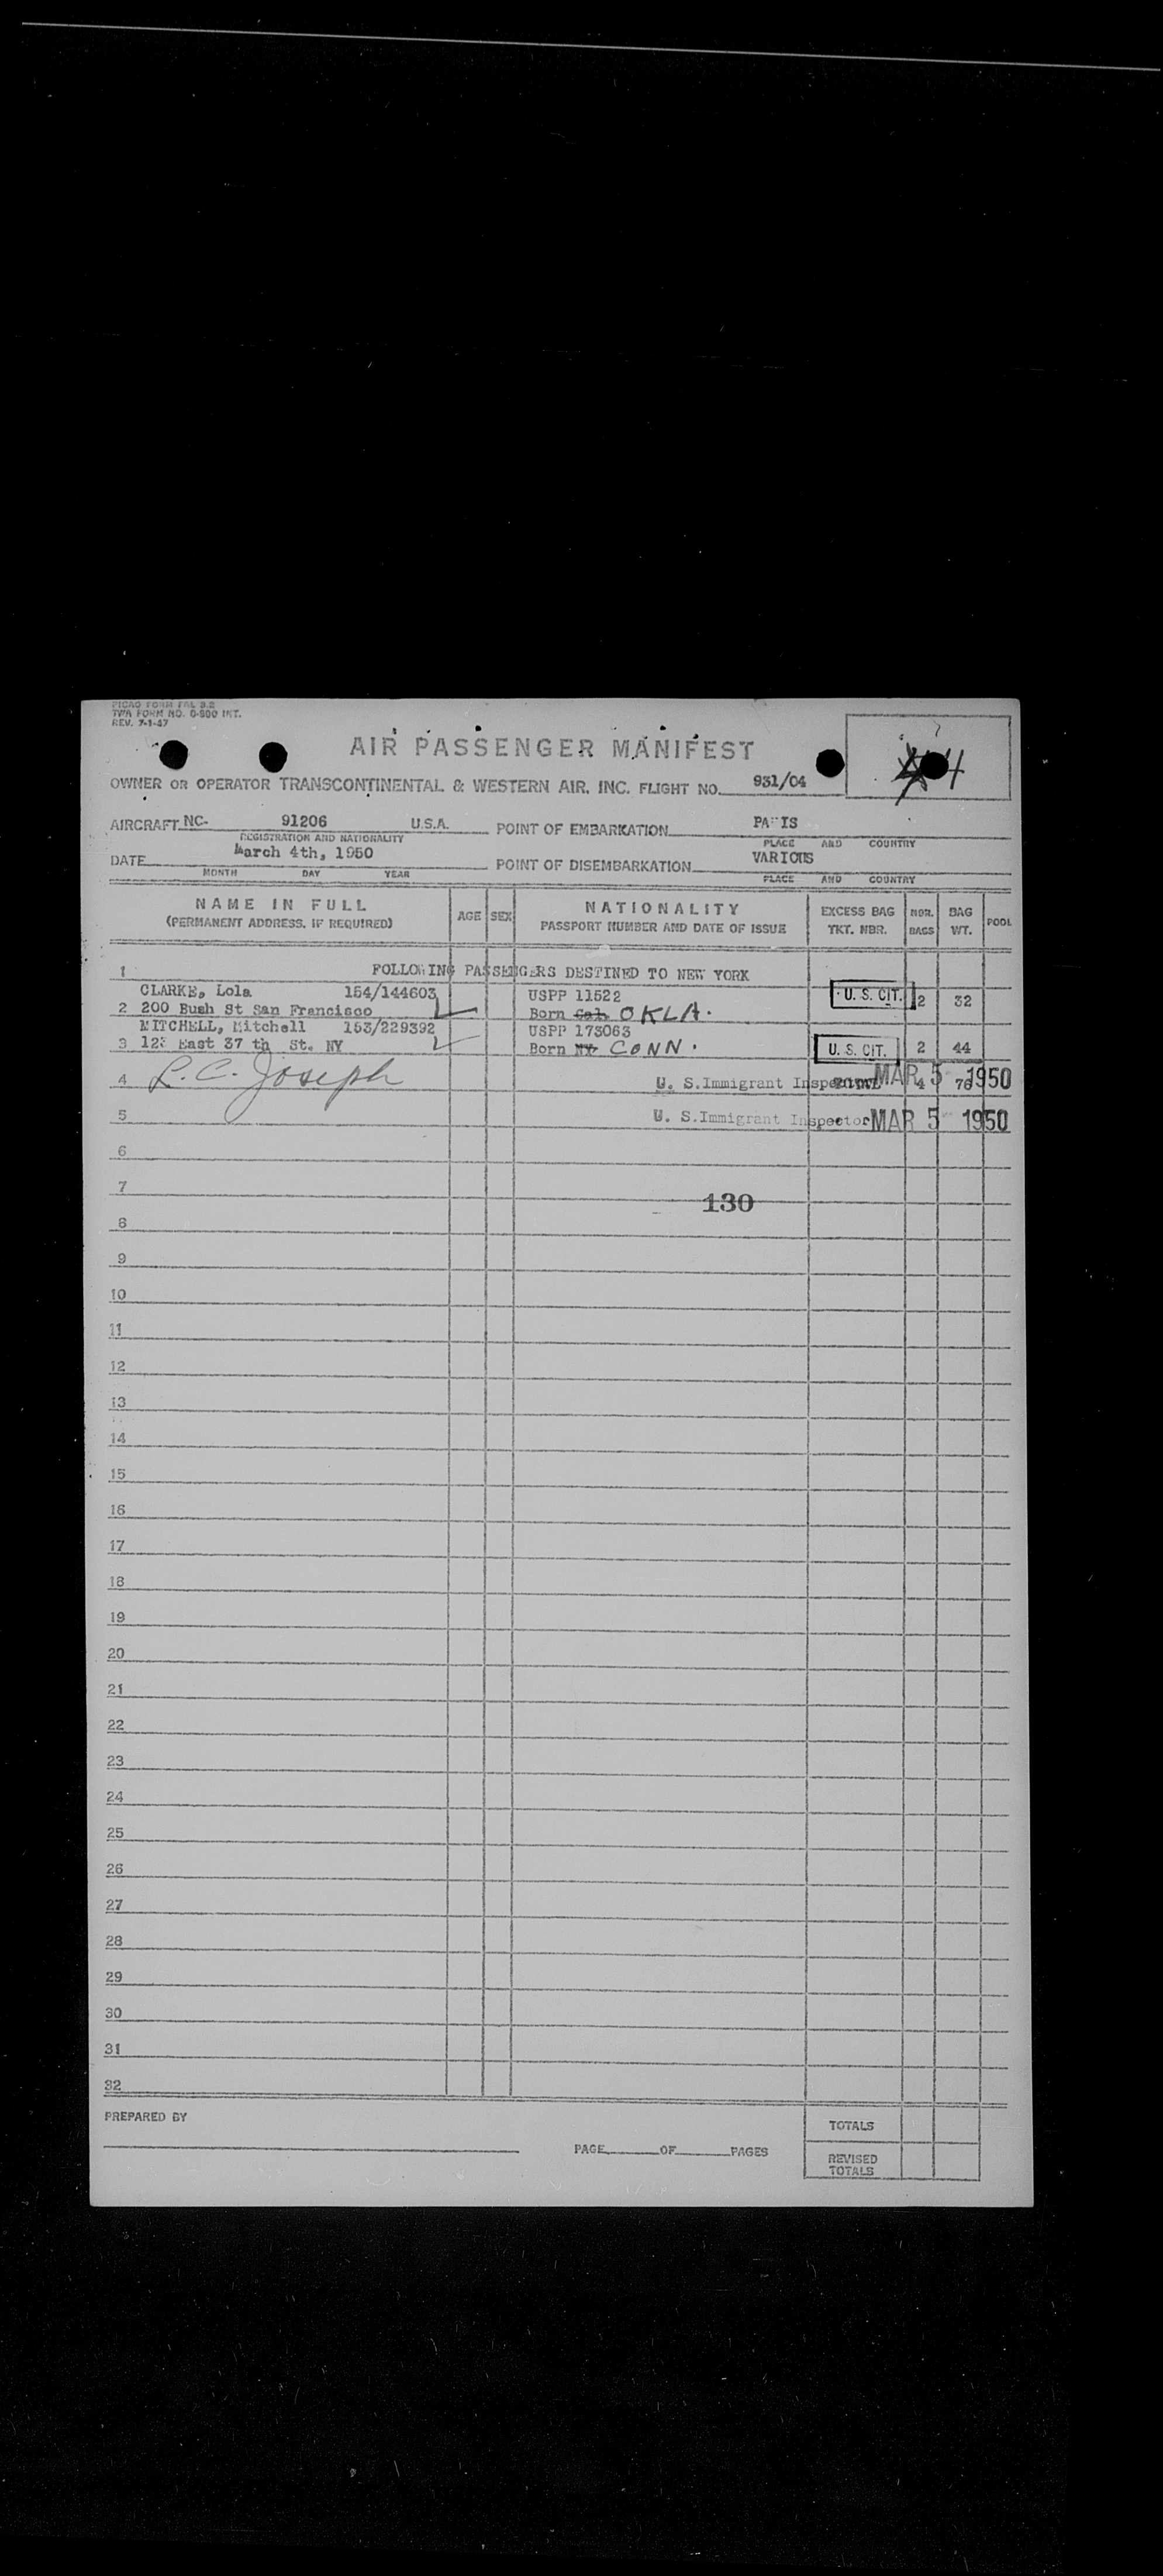 PICAO FORM FAL 3.2
TWA FORM NO. O-800 INT.
REV. 7-1-47
AIR PASSENGER MANIFEST
OWNER OR OPERATOR TRANSCONTINENTAL & WESTERN AIR, INC. FLIGHT NO. 931/04
AIRCRAFT NC- 91206 U.S.A. POINT OF EMBARKATION PA IS
REGISTRATION AND NATIONALITY PLACE AND COUNTRY
DATE March 4th, 1950 POINT OF DISEMBARKATION VARIOUS
MONTH DAY YEAR PLACE AND COUNTRY
NAME IN FULL
(PERMANENT ADDRESS, IF REQUIRED)
AGE SEX
NATIONALITY
PASSPORT NUMBER AND DATE OF ISSUE
EXCESS BAG
TKT. NBR.
NBR.
BAGS
BAG
WT.
POOL
1 FOLLOWING PASSENGERS DESTINED TO NEW YORK
CLARKE, Lola 154/144603 USPP 11522 U. S. CIT. 2 32
2 200 Bush St San Francisco Born Cal. OKLA.
MITCHELL, Mitchell 153/229392 USPP 173063
3 123 East 37 th St. NY Born NY CONN. U. S. CIT. 2 44
4 L. C. Joseph U. S. Immigrant Inspector MAR 5 1950 4 76
5 U. S. Immigrant Inspector MAR 5 1950
6
7 130
8
9
10
11
12
13
14
15
16
17
18
19
20
21
22
23
24
25
26
27
28
29
30
31
32
PREPARED BY
TOTALS
PAGE OF PAGES
REVISED
TOTALS